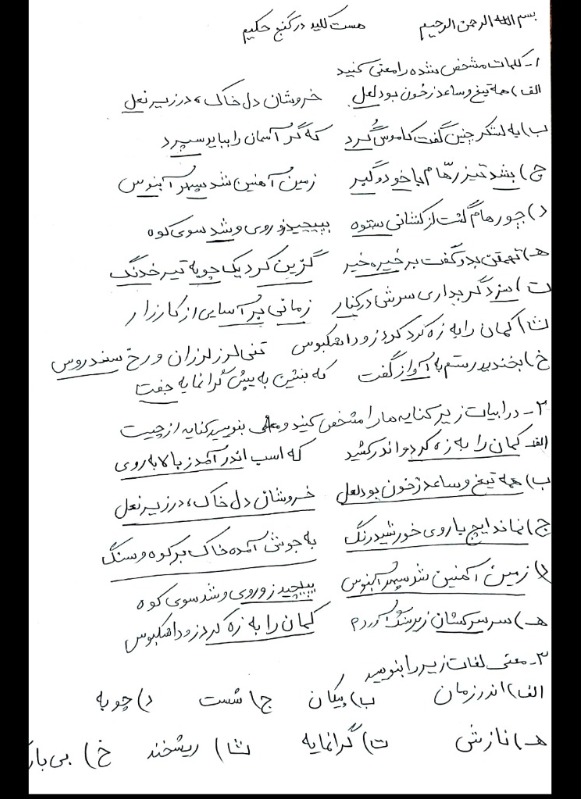 بسم الله الرحمن الرحیم هست کلید در گنج حکیم
۱- کلمات مشخص شده را معنی کنید
الف) همه تیغ و ساعد ز خون بود لعل خروشان دل خاک، در زیر نعل
ب) به لشکر چنین گفت کاموس گرد که گر آسمان را بباید سپرد
ج) بشد تیز رهّام با خود و گبر زمین آهنین شد سپهر آبنوس
د) چو رهام گشت از کشانی ستوه بپیچید زو روی و شد سوی کوه
هـ) تهمتن بدو گفت بر خیره خیر گزین کرد یک چوبه تیر خدنگ
ت) سزد گر بداری سرش در کنار زمانی بر آسایی از کارزار
ث) کمان را به زه کرد زود اشکبوس تنی لرز لرزان و رخ سندروس
خ) بخندید رستم به آواز گفت که بنشین به پیش گرانمایه جفت
۲- در ابیات زیر کنایه ها را مشخص کنید و بنویسید کنایه از چیست
الف- کمان را به زه کرد و اندر کشید که اسب اندر آمد ز بالا به روی
ب) همه تیغ و ساعد ز خون بود لعل خروشان دل خاک، در زیر نعل
ج) نماند ایچ با روی خورشید رنگ به جوش آمده خاک بر کوه و سنگ
د) زمین آهنین شد سپهر آبنوس بپیچید زو روی و شد سوی کوه
هـ) سر سرکشان زیر سنگ آورم کمان را به زه کرد زود اشکبوس
۳- معنی لغات زیر را بنویسید
الف) اندر زمان ب) پیکان ج) شست د) چوبه
هـ) نازش ت) گرانمایه ث) ریشخند خ)